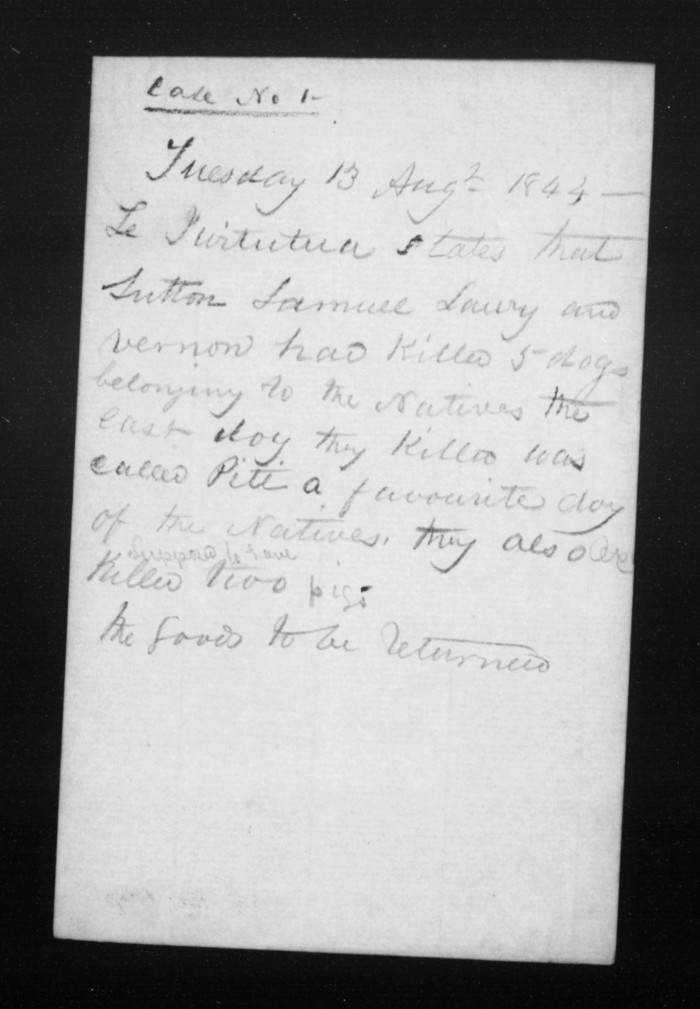 Case No 1-
Tuesday 13 Augt 1844 —
Te Piritutua states that
Sutton Samuel Lawry and
vernon had Killed 5 dogs
belonging to the Natives the
last dog they Killed was
called Piti a favourite dog
of the Natives. they also are
Supposed to have
Killed two pigs
the goods to be returned